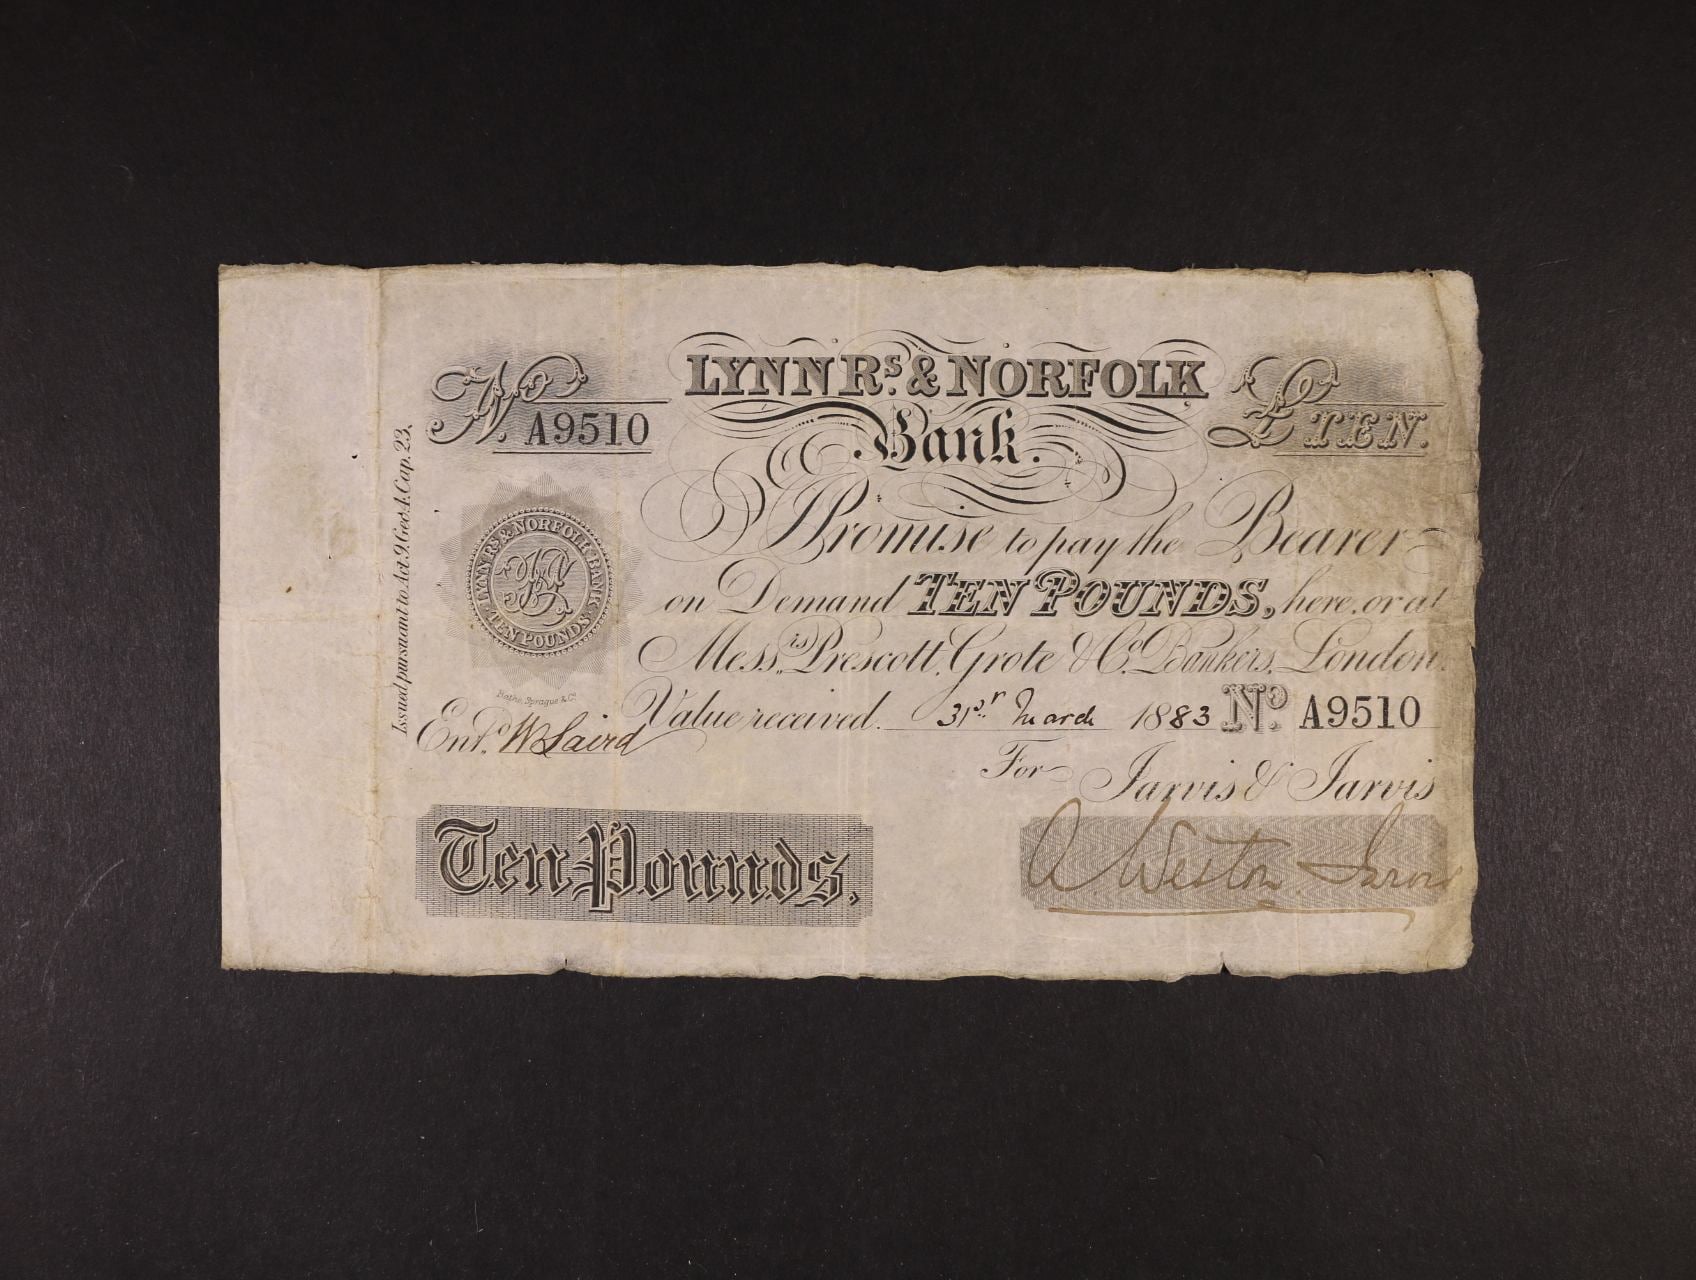 LYNN Rs. & NORFOLK
Bank.
No. A9510
£ TEN.
Issued pursuant to Act. 9 Geo. 4. Cap. 23.
LYNN RS & NORFOLK BANK
TEN POUNDS
I Promise to pay the Bearer
on Demand TEN POUNDS, here, or at
Messrs Prescott, Grote & Co. Bankers, London.
Value received. 31st March 1883 No. A9510
Entd. W Laird
For Jarvis & Jarvis
Ten Pounds.
A. Weston Jarvis